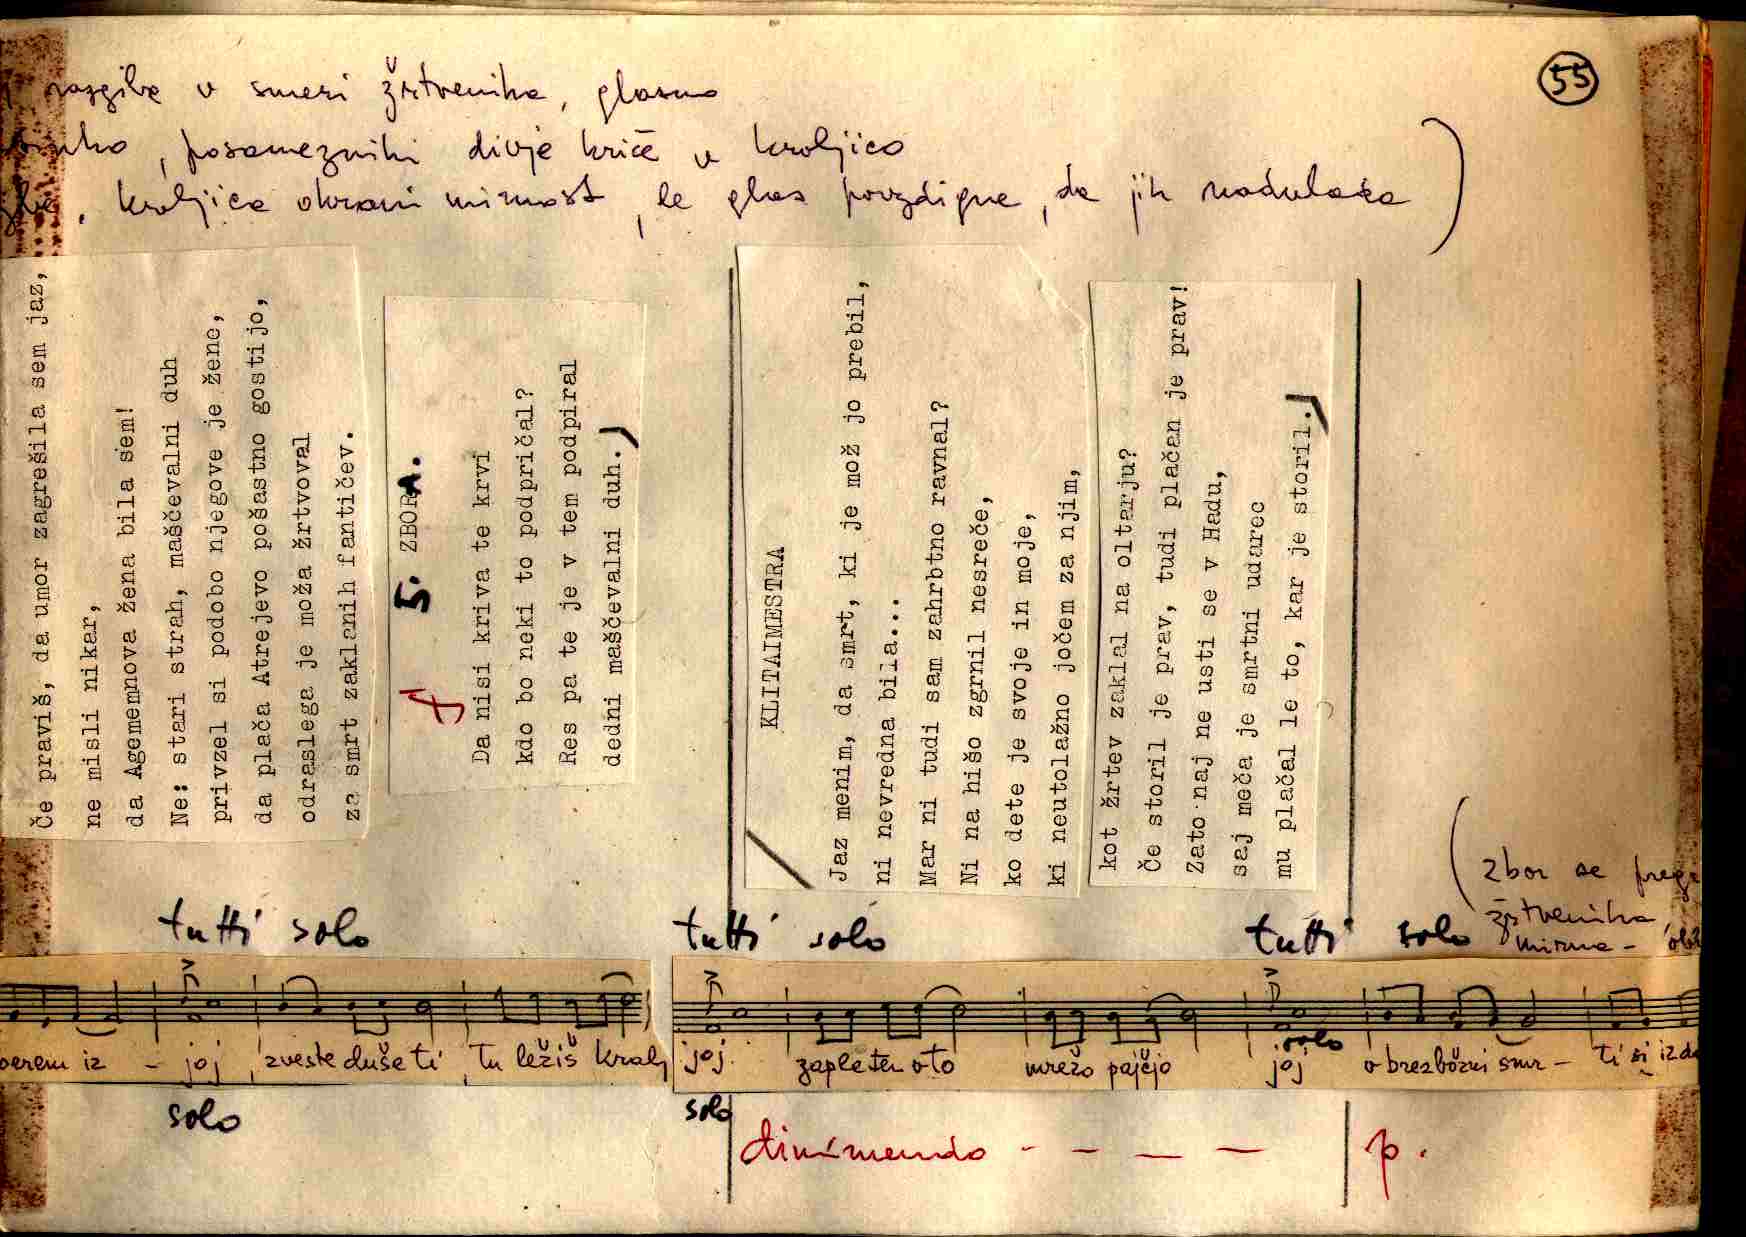 55
razgibe v smeri žrtvenika, glasno
, posamezniki divje kriče v kraljico
, kraljica ohrani mirnost, le glas povzdigne, da jih nadvlada)
Če praviš, da umor zagrešila sem jaz,
ne misli nikar,
da Agememnova žena bila sem!
Ne: stari strah, maščevalni duh
privzel si podobo njegove je žene,
da plača Atrejevo pošastno gostijo,
odraslega je moža žrtvoval
za smrt zaklanih fantičev.
5. ZBORA.
f
Da nisi kriva te krvi
kdo bo neki to podpričal?
Res pa te je v tem podpiral
dedni maščevalni duh.)
KLITAIMESTRA
Jaz menim, da smrt, ki je mož jo prebil,
ni nevredna bila...
Mar ni tudi sam zahrbtno ravnal?
Ni na hišo zgrnil nesreče,
ko dete je svoje in moje,
ki neutolažno jočem za njim,
kot žrtev zaklal na oltarju?
Če storil je prav, tudi plačan je prav!
Zato naj ne usti se v Hadu,
saj meča je smrtni udarec
mu plačal le to, kar je storil.)
(zbor se
žrtvenika
mirna -
tutti solo tutti solo tutti solo
solo
verem iz - joj zveste duše ti tu ležiš kralj joj zapleten v to mrežo pajčjo joj o brezbožni smr - ti si izda
solo solo
diminuendo - - - - p.